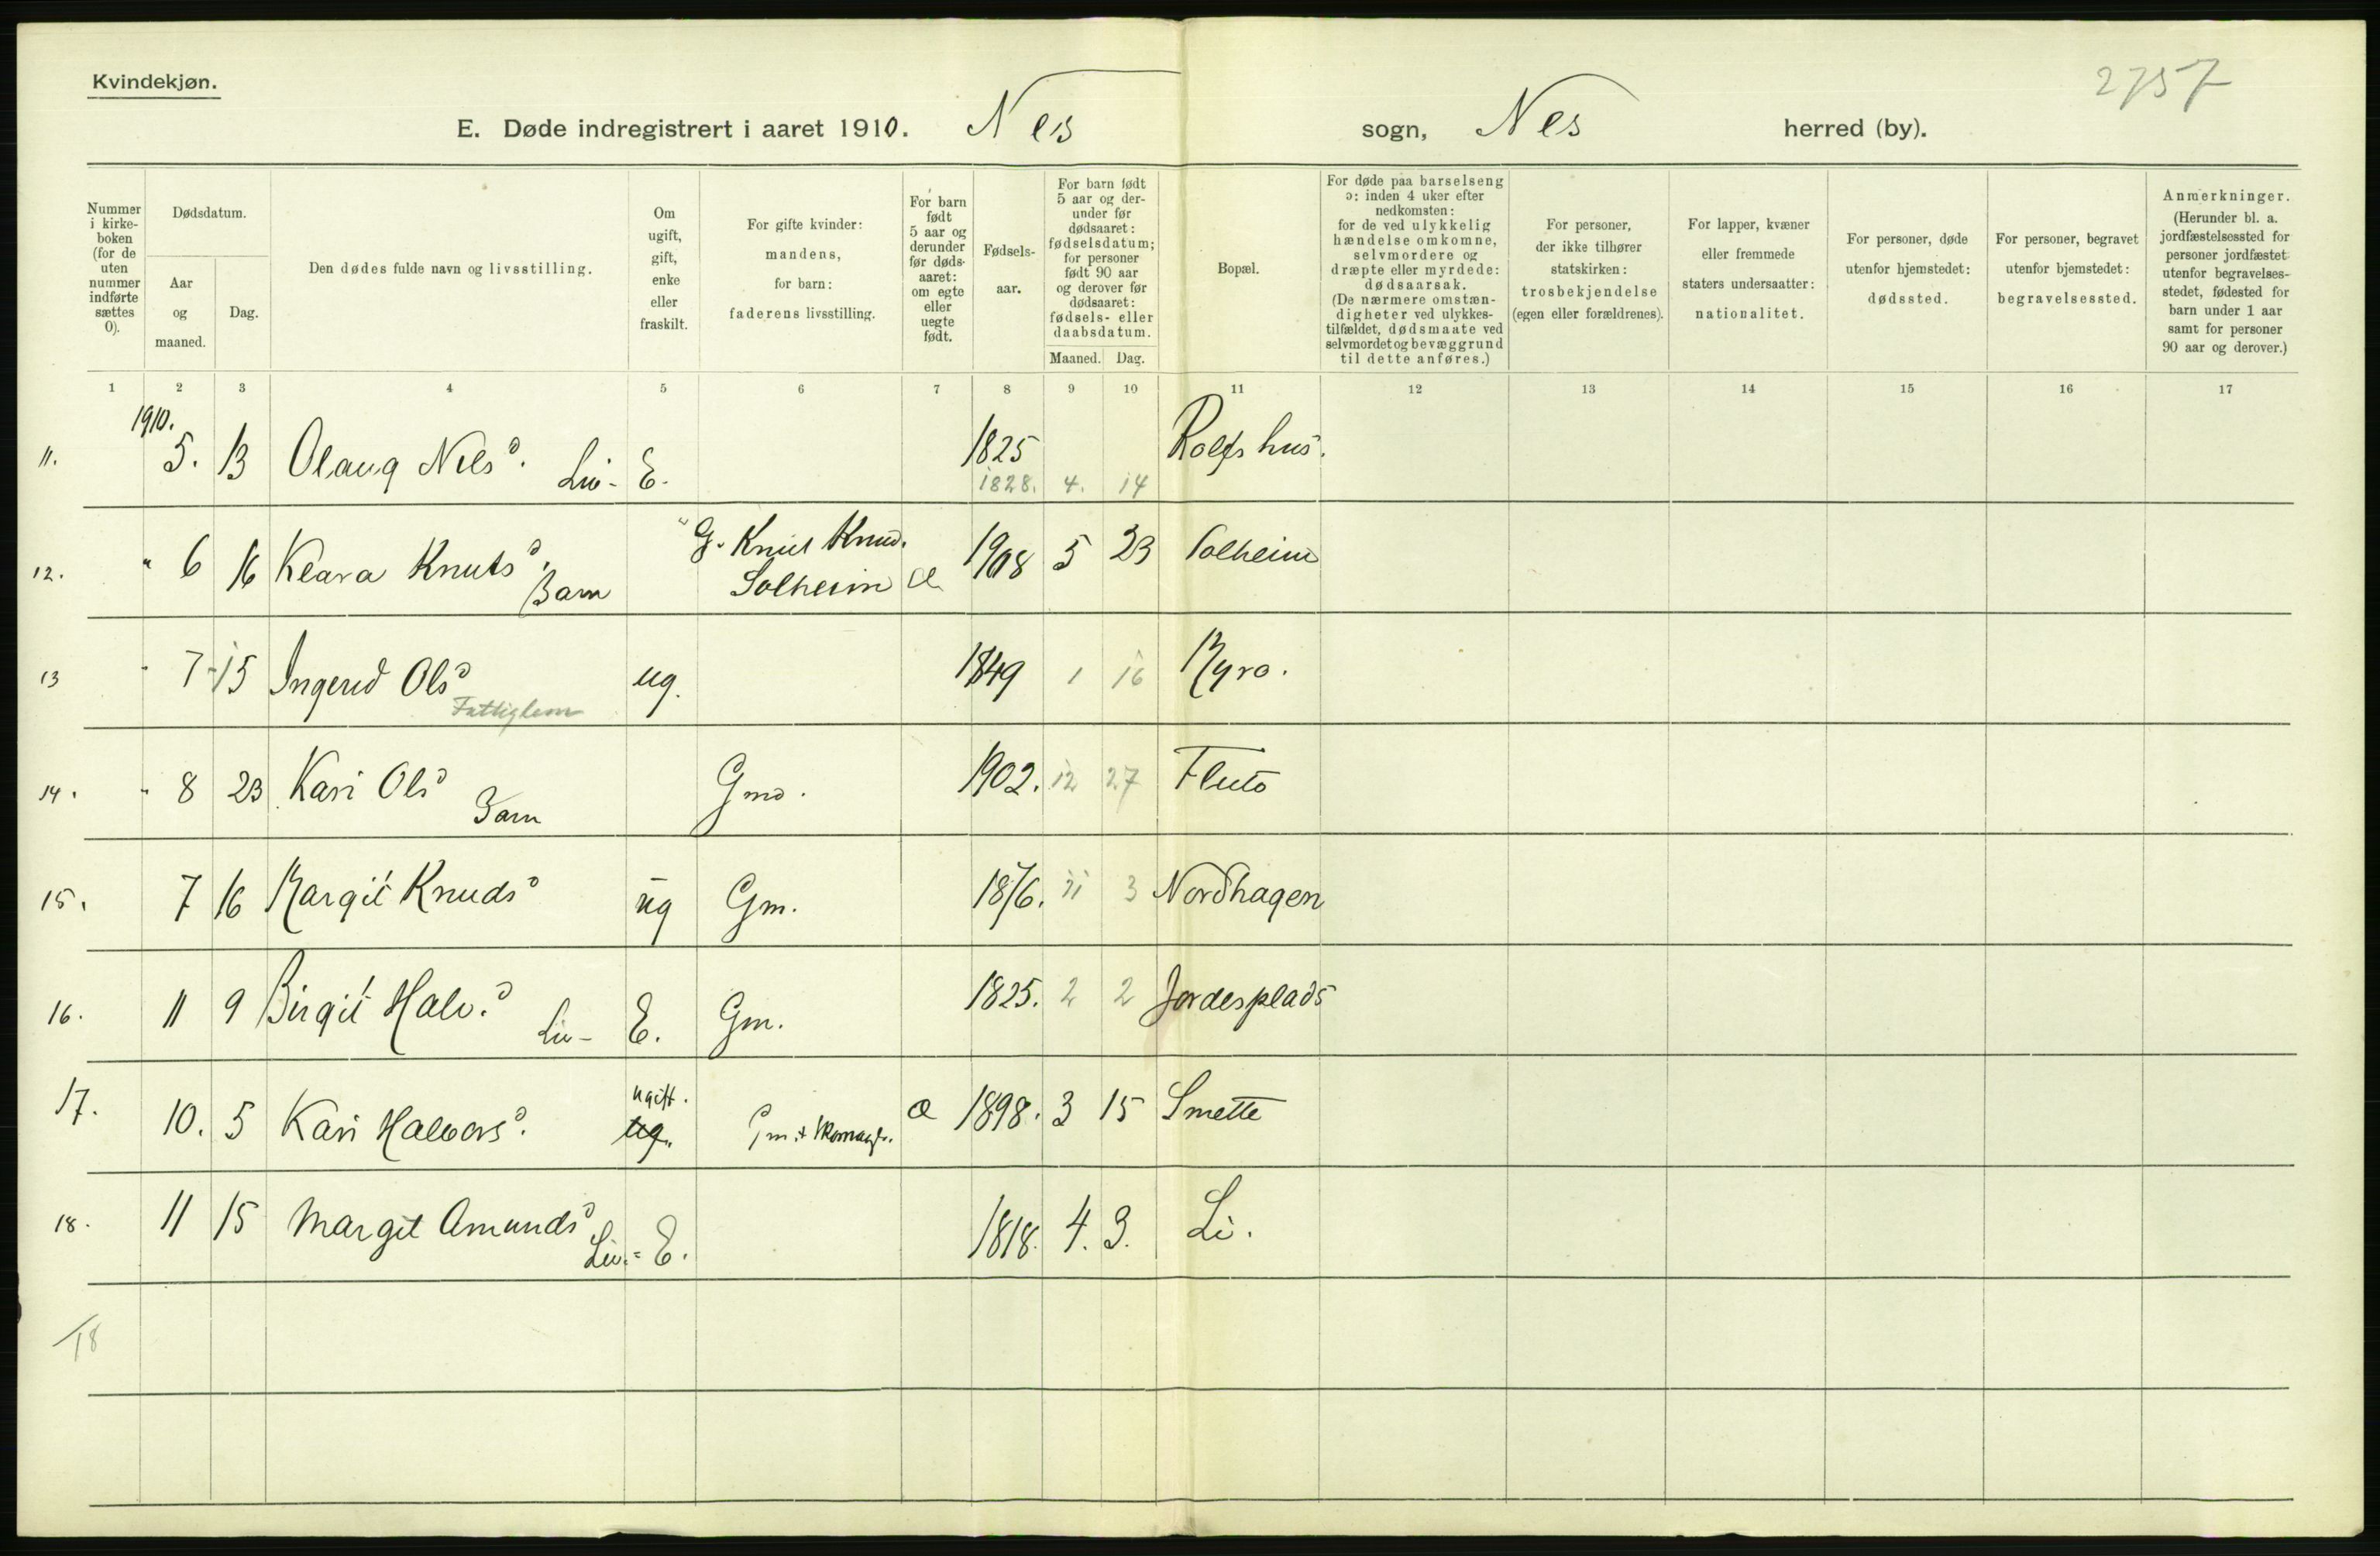 Kvindekjøn.
2757
E. Døde indregistrert i aaret 1910. Nes sogn, Nes herred (by).
Nummer i kirke- boken (for de uten nummer indførte sættes 0).
Dødsdatum.
Aar og maaned.
Dag.
Den dødes fulde navn og livsstilling.
Om ugift, gift, enke eller fraskilt.
For gifte kvinder: mandens, for barn: faderens livsstilling.
For barn født 5 aar og derunder før døds- aaret: om egte eller uegte født.
Fødsels- aar.
For barn født 5 aar og der- under før dødsaaret: fødselsdatum; for personer født 90 aar og derover før dødsaaret: fødsels- eller daabsdatum.
Maaned. Dag.
Bopæl.
For døde paa barselseng ɔ: inden 4 uker efter nedkomsten: for de ved ulykkelig hændelse omkomne, selvmordere og dræpte eller myrdede: dødsaarsak. (De nærmere omstæn- digheter ved ulykkes- tilfældet, dødsmaate ved selvmordet og bevæggrund til dette anføres.)
For personer, der ikke tilhører statskirken: trosbekjendelse (egen eller forældrenes).
For lapper, kvæner eller fremmede staters undersaatter: nationalitet.
For personer, døde utenfor hjemstedet: dødssted.
For personer, begravet utenfor hjemstedet: begravelsessted.
Anmerkninger. (Herunder bl. a. jordfæstelsessted for personer jordfæstet utenfor begravelses- stedet, fødested for barn under 1 aar samt for personer 90 aar og derover.)
1 2 3 4 5 6 7 8 9 10 11 12 13 14 15 16 17
1910.
11. 5. 13 Olaug Nilsd. 1825 Rolfshus.
Liv- E. 1828. 4. 14
12. " 6 16 Klara Knutsd. G. Knut Knud. 1908 5 23 Solheim
Barn Solheim æ
13 " 7 15 Ingerid Olsd ug. 1849 1 16 Myro.
Fattiglem
14. " 8 23 Kari Olsd Gmd. 1902. 12 27 Fluto
Barn
15. 7 16 Margit Knudsd ug Gm. 1876. 11 3 Nordhagen
16. 11 9 Birgit Halv.d 1825. 2 2 Jordesplads
Liv- E. Gm.
17. 10. 5 Kari Halvorsd. ugift. æ 1898. 3 15 Smette
ug.
18. 11 15 Margit Amundsd 1818. 4. 3. Li.
Liv.= E.
18